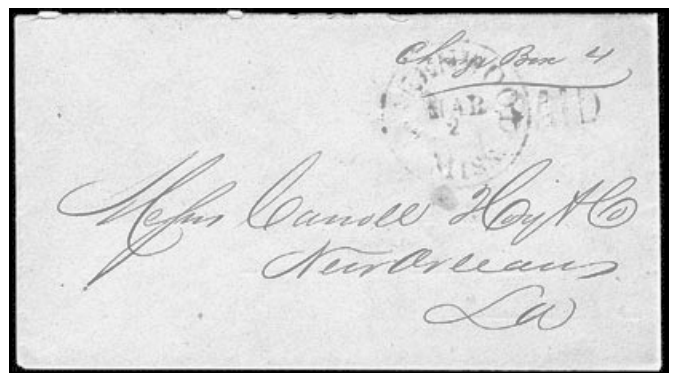 Charge Box 4
MAR
2
MISS.
PAID
Messrs Carroll Hoy & Co
New Orleans
La